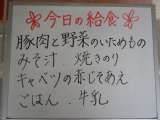 今日の給食
豚肉と野菜のいためもの
みそ汁．焼きのり
キャベツの赤じそあえ
ごはん．牛乳